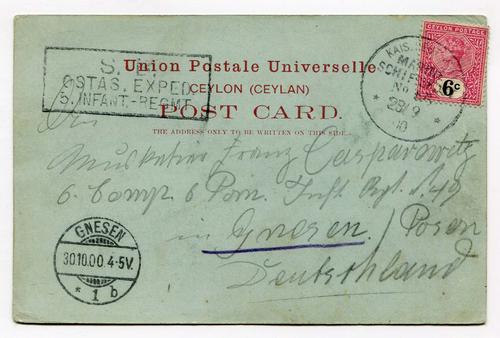 S. B.
OSTAS. EXPED.
3. INFANT.-REGMT.
Union Postale Universelle
CEYLON (CEYLAN)
POST CARD.
THE ADDRESS ONLY TO BE WRITTEN ON THIS SIDE.
CEYLON POSTAGE
6c
KAIS.
MARINE
SCHIFFSPOST
No
28/9
00
An
Musketier Franz Casparowitz
6. Comp. 6 Pom. Inft. Rgt. N. 49
in Gnesen / Posen
Deutschland
GNESEN
30.10.00. 4-5V.
* 1 b